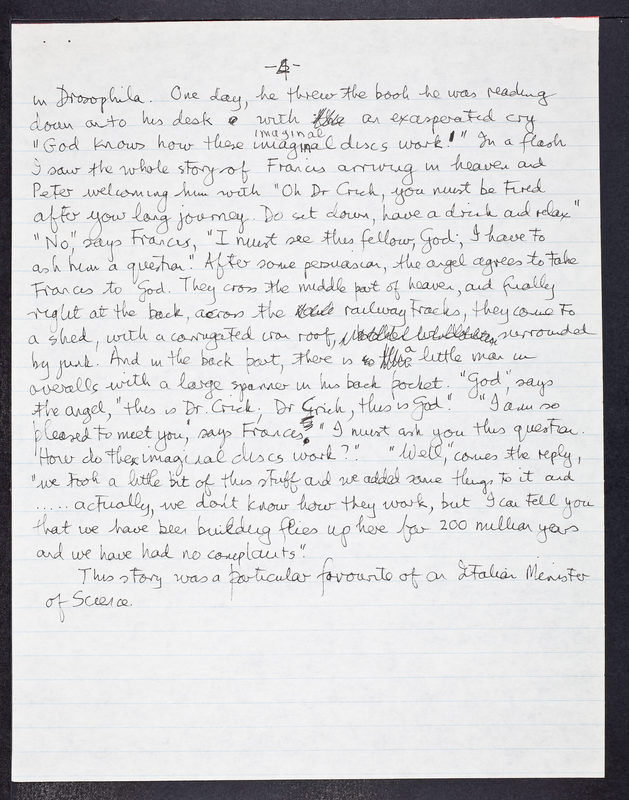 -4-
in Drosophila. One day, he threw the book he was reading
down onto his desk with an exasperated cry
imaginal
"God knows how these imaginal discs work!" In a flash
I saw the whole story of Francis arriving in heaven and
Peter welcoming him with "Oh Dr Crick, you must be tired
after your long journey. Do sit down, have a drink and relax"
"No", says Francis, "I must see this fellow, God; I have to
ask him a question." After some persuasion, the angel agrees to take
Francis to God. They cross the middle part of heaven, and finally
right at the back, across the railway tracks, they come to
a shed, with a corrugated iron roof, surrounded
by junk. And in the back part, there is a little man in
overalls with a large spanner in his back pocket. "God", says
the angel, "this is Dr. Crick; Dr Crick, this is God". "I am so
pleased to meet you," says Francis. "I must ask you this question.
How do the imaginal discs work?" "Well," comes the reply,
"we took a little bit of this stuff and we added some things to it and
..... actually, we don't know how they work, but I can tell you
that we have been building flies up here for 200 million years
and we have had no complaints".
This story was a particular favourite of an Italian Minister
of Science.